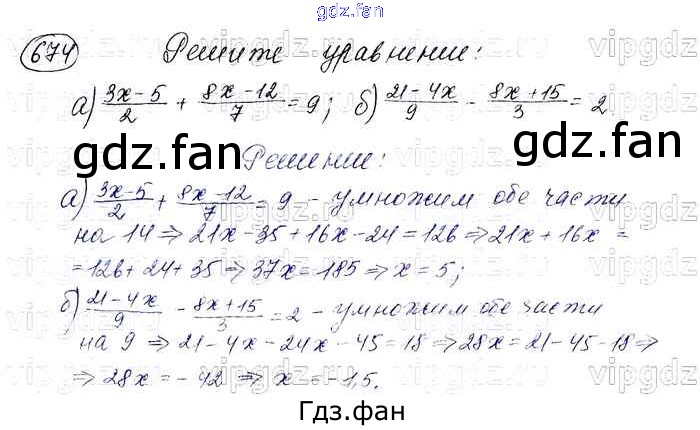 gdz.fan
674 Решите уравнение:
а) (3x-5)/2 + (8x-12)/7 = 9; б) (21-4x)/9 - (8x+15)/3 = 2.
gdz.fan gdz.fan
Решение:
а) (3x-5)/2 + (8x-12)/7 = 9 - умножим обе части
на 14 ⇒ 21x-35+16x-24=126 ⇒ 21x+16x =
=126+24+35 ⇒ 37x=185 ⇒ x=5;
б) (21-4x)/9 - (8x+15)/3 = 2 - умножим обе части
на 9 ⇒ 21-4x-24x-45=18 ⇒ 28x=21-45-18 ⇒
⇒ 28x=-42 ⇒ x=-1,5.
Гдз.фан